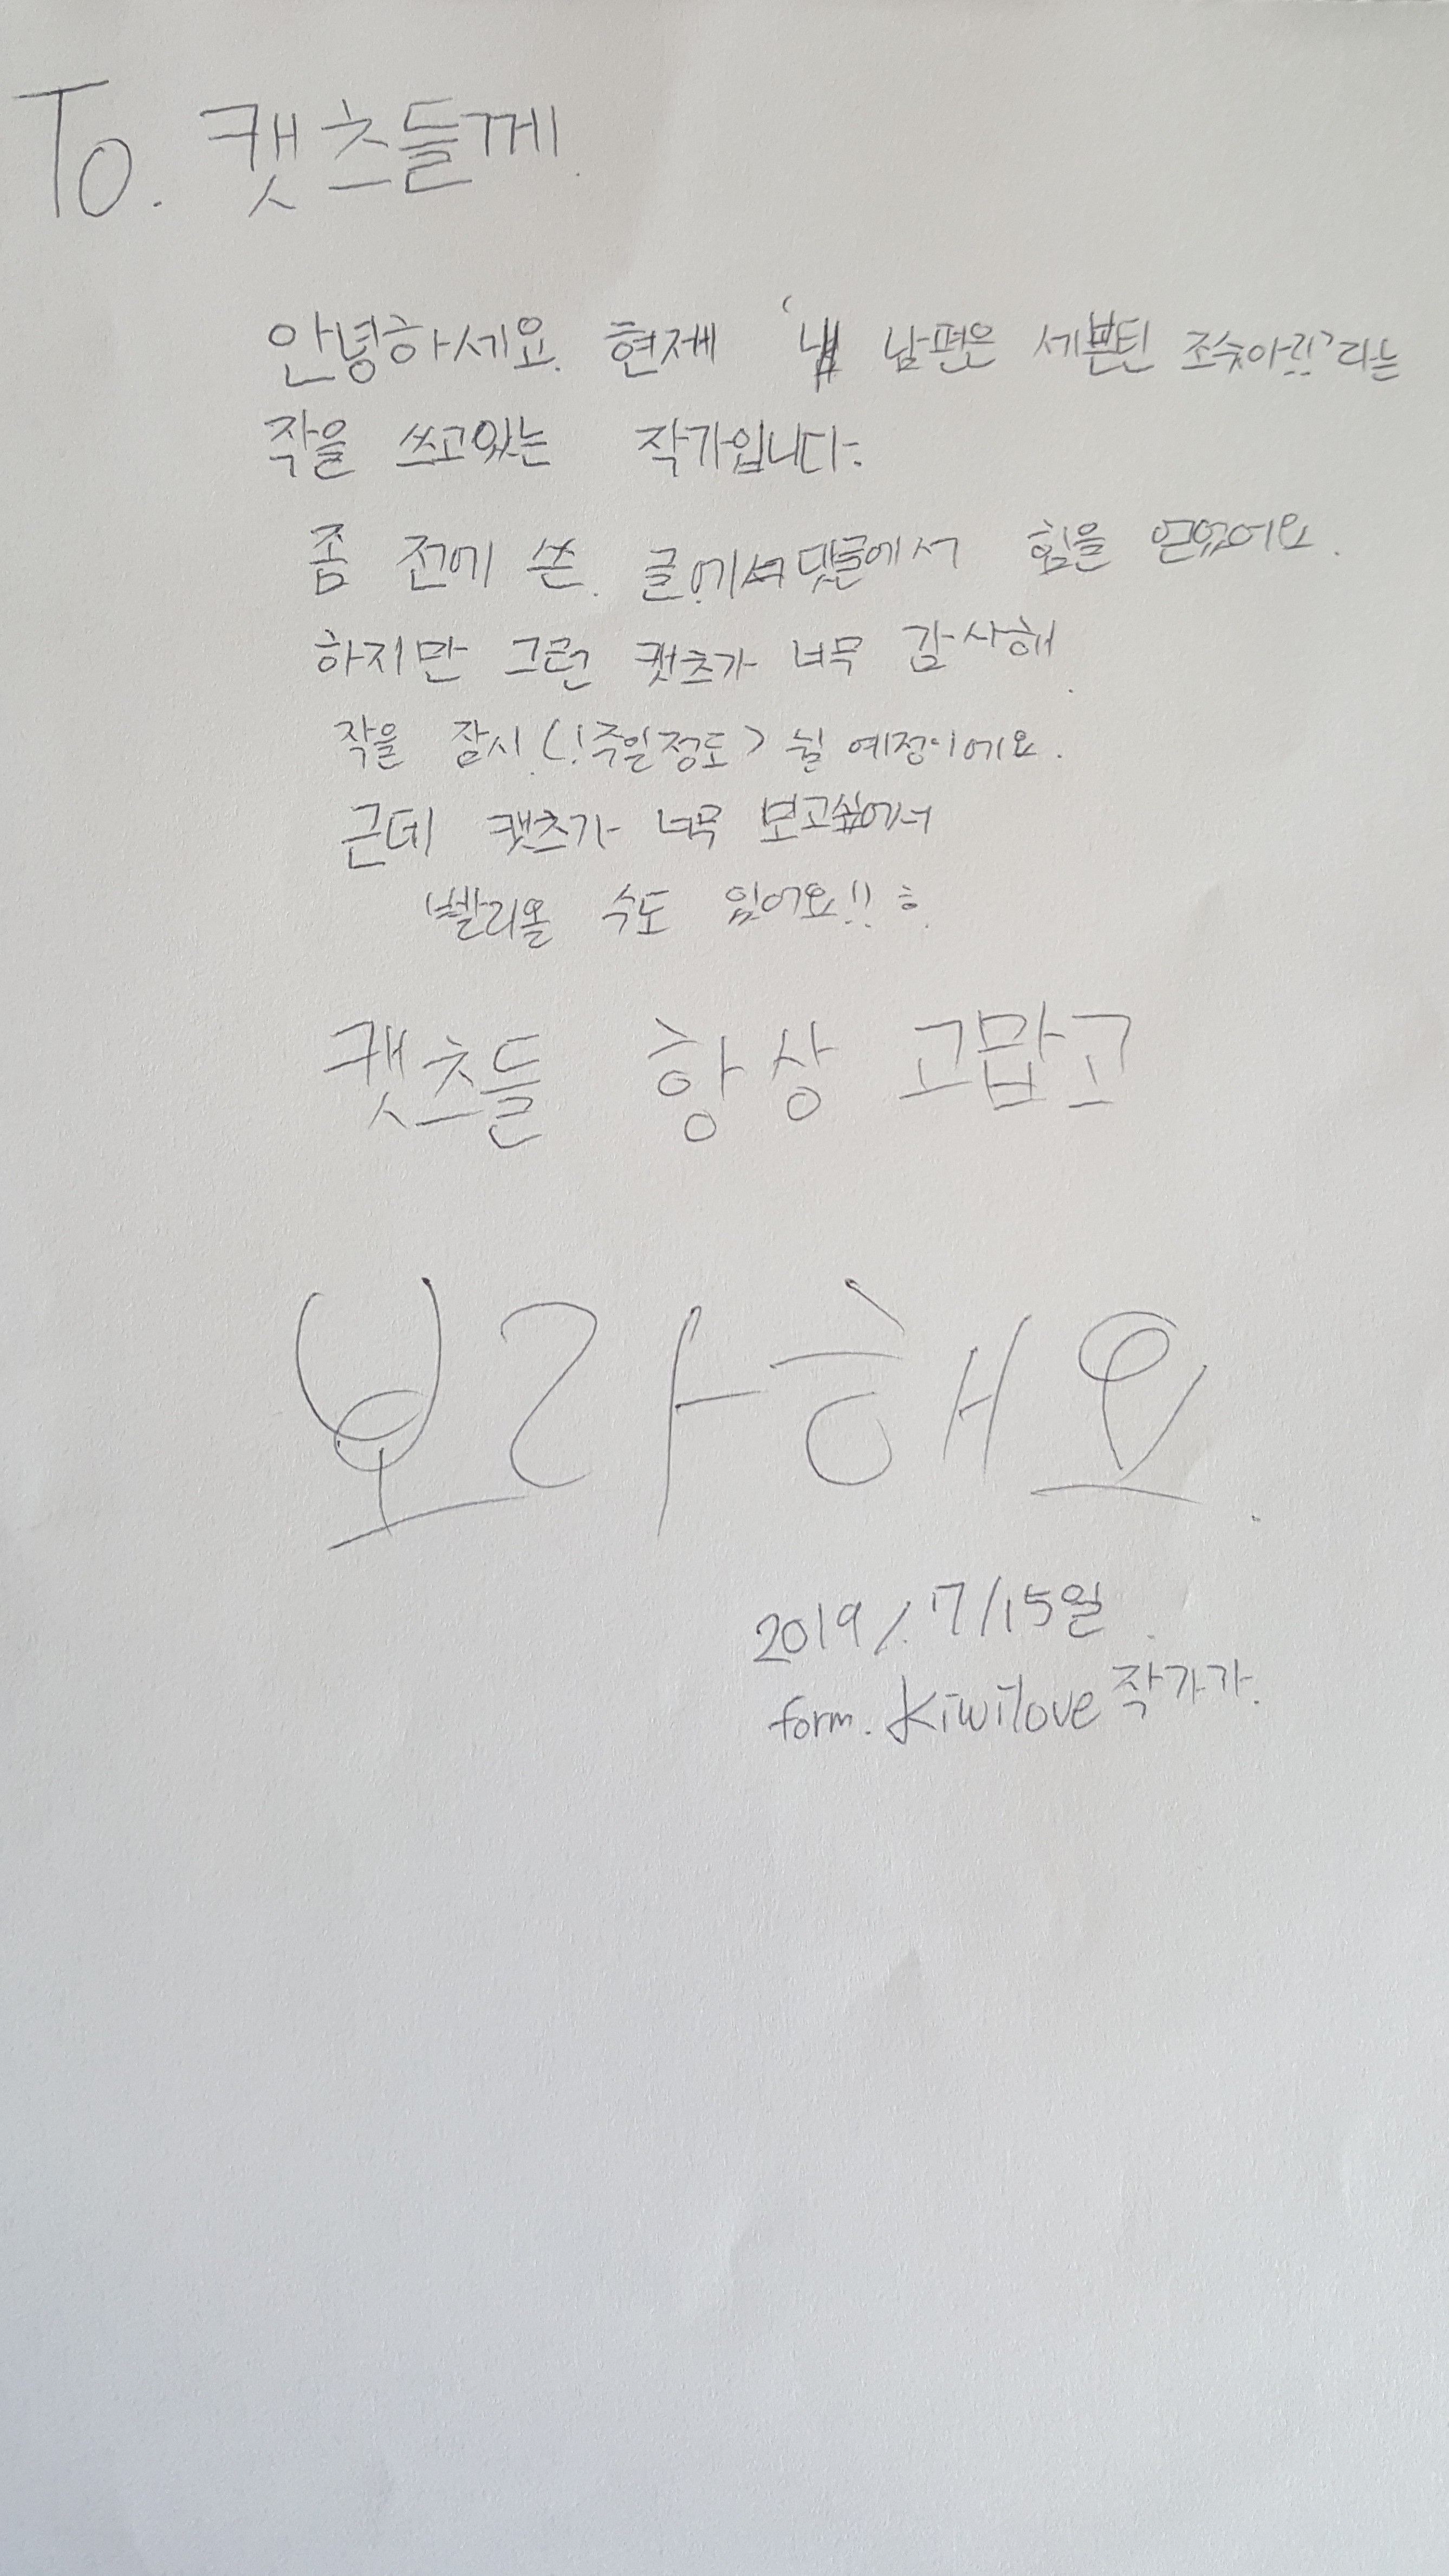 To. 캣츠들께.
안녕하세요. 현제 '내 남편은 세븐틴 조슈아?!'라는
작을 쓰고있는 작가입니다.
좀 전에 쓴 글에서 댓글에서 힘을 얻었어요.
하지만 그런 캣츠가 너무 감사해.
작을 잠시 (1주일정도) 쉴 예정이에요.
근데 캣츠가 너무 보고싶에서
빨리올 수도 있어요!! ㅎ.
캣츠들 항상 고맙고
보라해요.
2019/.7/15일.
form. kiwilove 작가가.